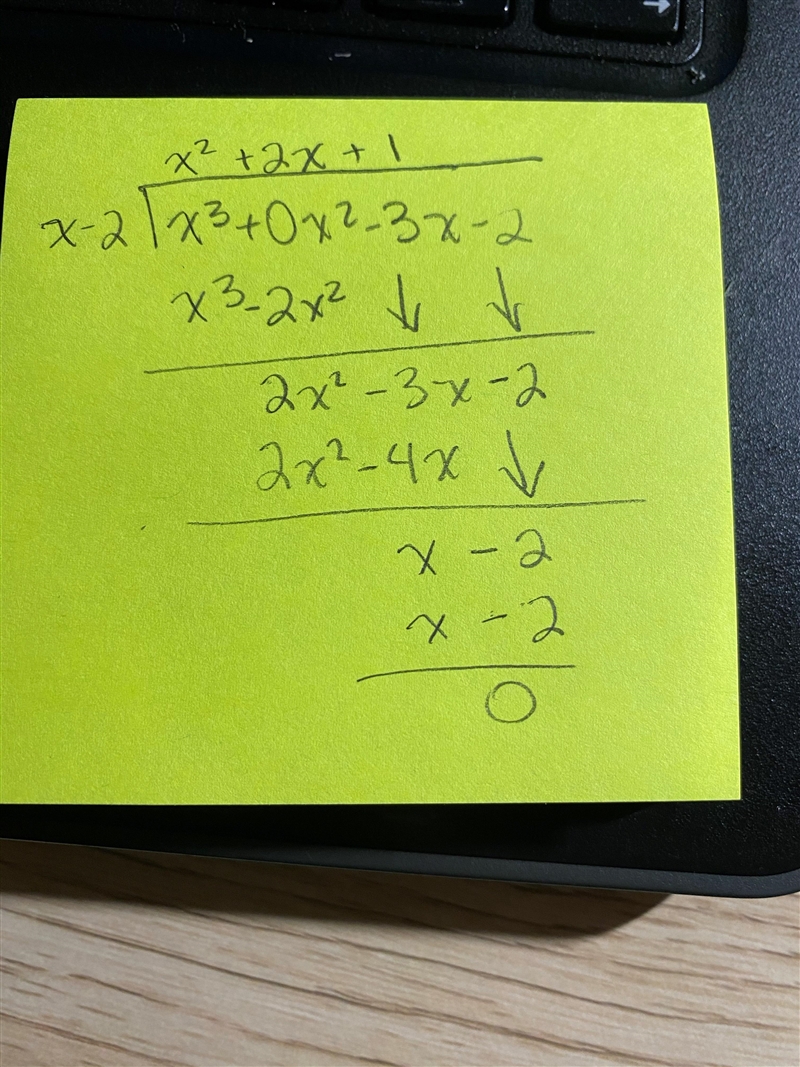 x² + 2x + 1
x - 2 x³ + 0x² - 3x - 2
x³ - 2x² ↓ ↓
2x² - 3x - 2
2x² - 4x ↓
x - 2
x - 2
0